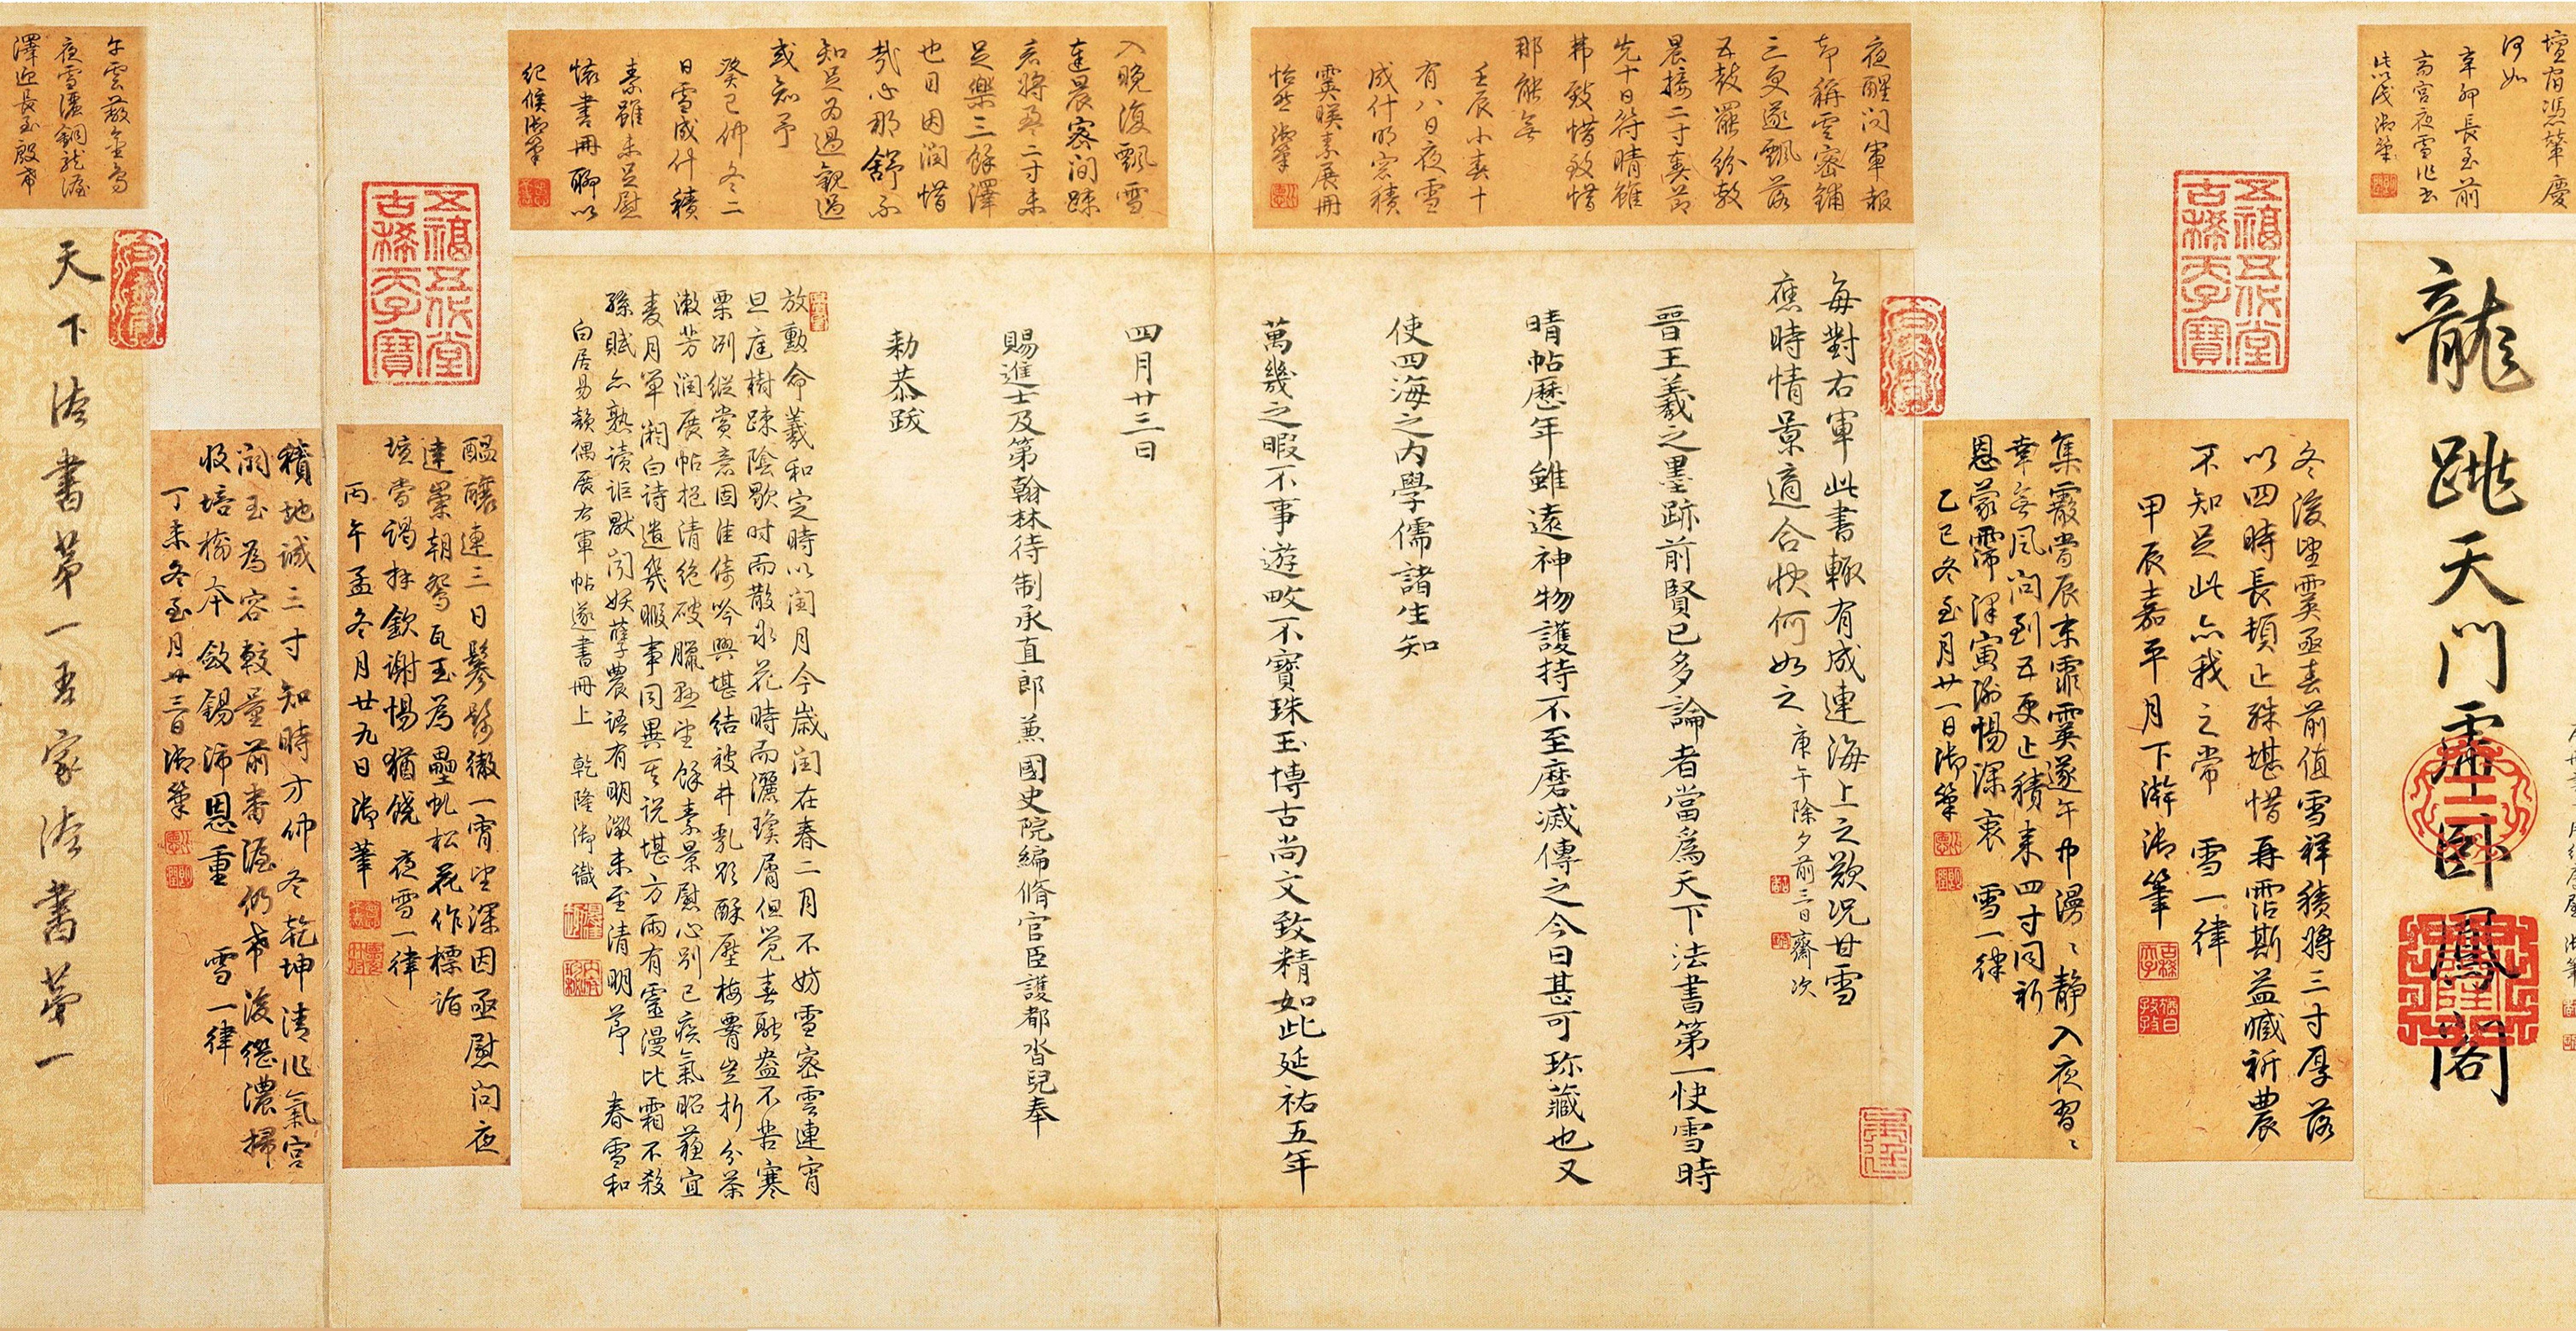 辛卯長至前
龍跳天門虎臥鳳閣
五福五代堂
古稀天子寶
冬後望霙亟春前值雪祥積將三寸厚落
以四時長頓止殊堪惜再霑斯益臧祈農
不知足此亦我之常 雪一律
甲辰嘉平月下澣御筆
古稀天子
猶日孜孜
集霰當辰末霏霙遂午中漫〻靜入夜習〻
幸無風問到五更止積來四寸同祈
恩蒙霈澤寅 惕深衷 雪一律
乙巳冬至月廿一日御筆
夜醒問軍報
却稱雲密鋪
三更遂飄落
五鼓罷紛敷
晨接二寸奏節
先十日符晴雖
弗致惜致惜
那能無
壬辰小春十
有八日夜雪
成什明窓積
霙暎素展冊
怡然 御筆
每對右軍此書輒有成連海上之歎況甘雪
應時情景適合快何如之 庚午除夕前三日齋次
晉王羲之墨跡前賢已多論者當爲天下法書第一快雪時
晴帖歷年雖遠神物護持不至磨滅傳之今日甚可珎藏也又
使四海之內學儒諸生知
萬幾之暇不事遊畋不寶珠玉博古尚文致精如此延祐五年
四月廿三日
賜進士及第翰林待制承直郎兼國史院編脩官臣護都沓兒奉
勅恭跋
入晚復飄雪
達晨密間踈
言將盈二寸未
足樂三餘澤
也目因潤惜
哉心那舒不
知足為過觀過
或知予
癸巳仲冬二
日雪成什積
素雖未足慰
懷書冊聊以
紀候御筆
放勳命羲和定時以閏月今歲閏在春二月不妨雪密雲連宵
旦庭樹踈陰歇時而散氷花時而灑瓊屑但覺春融盎不苦寒
栗冽縱賞意固佳倚吟興堪結被井亂 酥壓梅 豈折分茶
漱芳潤展帖挹清絕破臘 望餘素景慰心別已疾氣昭蘇宜
麥月單 白詩遣幾暇事同異其說堪方兩有靈漫比霜不殺
 賦亦熟讀詎 閔妖孽農語有明徵未至清明節 春雪和
白居易韻偶展右軍帖遂書冊上 乾隆御識
五福五代堂
古稀天子寶
醞釀連三日鬖髿徹一宵望深因亟慰問夜
達崇朝鴛瓦玉為壘虬松花作標詣
壇當謁拜欽謝惕猶饒 夜雪一律
丙午孟冬月廿九日御筆
積地誠三寸知時方仲冬乾坤清作氣宮
闕玉為容較量前番渥仍希後繼濃掃
收培樹本斂錫沛恩重 雪一律
丁未冬至月廿三日御筆
夜雪
澤迎長至殷希
天下法書第一吾家法書第一